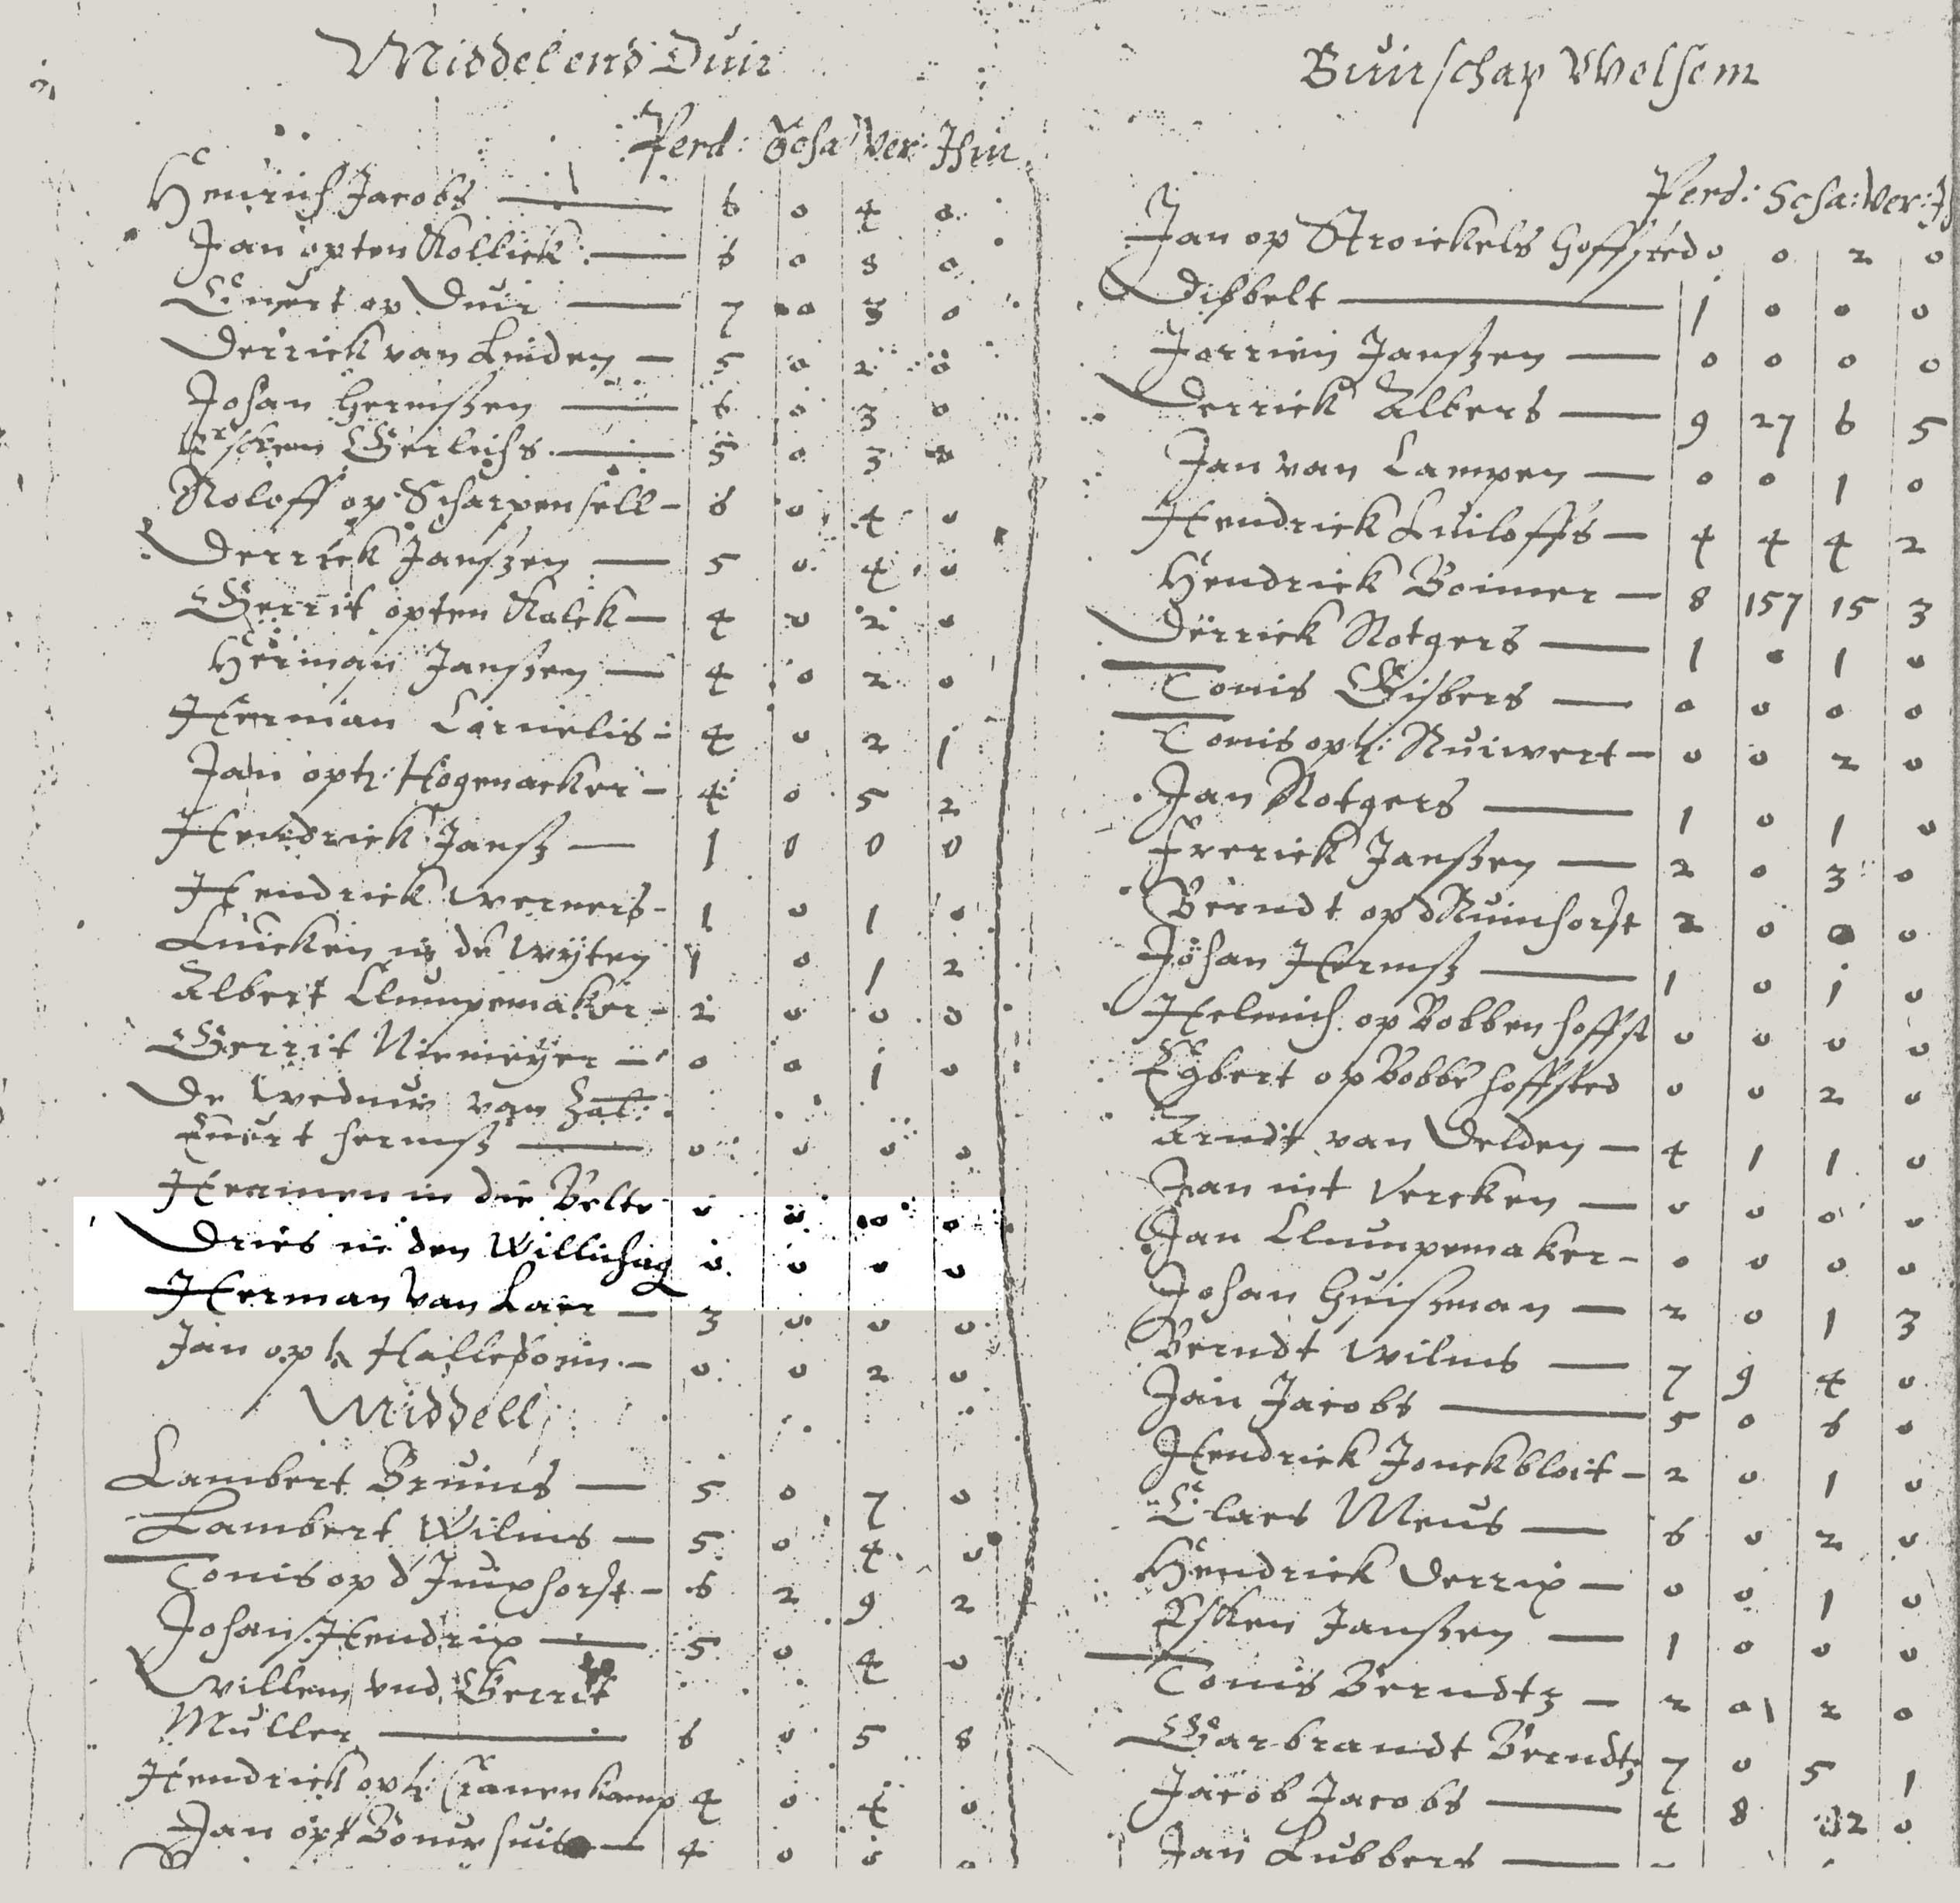 Middelend Duir
Perd: Scha Ver: Hun
Henrich Jacobs — 6 0 4 0
Jan opten Kollick: — 6 0 8 0
Evert op Duir — 7 0 8 0
Derrick van Linden — 5 0 2 0
Johan Hermszen — 6 0 3 0
Gerlichs — 5 0 3 0
Roloff op Scharpensell — 6 0 4 0
Derrick Janszen — 5 0 4 0
Gerrit opten Kolck — 4 0 2 0
Herman Janszen — 4 0 2 0
Herman Cornelis — 4 0 2 1
Jan opt: Hogenacker — 4 0 5 2
Hendrick Jansz — 1 0 0 0
Hendrick Werners — 1 0 1 0
Luicken in de Wyten 1 0 1 2
Albert Clumpemaker — 2 0 0 0
Gerrit Niemeyer — 0 0 1 0
De Weduw van Zal:
Evert hermsz — 0 0 0 0
Hermen in die Belte 0 0 0 0
Dries in den Willichag 0 0 0 0
Herman van Laer — 3 0 0 0
Jan opt — 0 0 2 0
Middell
Lambert Bruins — 5 0 7 0
Lambert Wilms — 5 0 4 0
Tonis op d' — 6 2 9 2
Johan Hendrix — 5 0 4 0
Willem und Gerrit
Muller — 6 0 5 8
Hendrick opt: Cranenkamp 4 0 4 0
Jan opt Bouwhuis — 4 0 0 0
Buirschap Welsem
Perd: Scha: Ver: H
Jan op Stroickels hoffsted 0 0 2 0
Dibbelt — 1 0 0 0
Jorrien Janszen — 0 0 0 0
Derrick Albers — 9 27 6 5
Jan van Campen — 0 0 1 0
Hendrick Luiloffs — 4 4 4 2
Hendrick Boimer — 8 157 15 3
Derrick Rotgers — 1 0 1 0
Tonis Gisbers — 0 0 0 0
Tonis opt: Ruiwert — 0 0 2 0
Jan Rotgers — 1 0 1 0
Frerick Janszen — 2 0 3 0
Berndt op d Ruinhorst 2 0 0 0
Johan Hermsz — 1 0 1 0
Helmich op Bobben hoffst 0 0 0 0
Egbert op Bobbe hoffsted 0 0 2 0
Arndt van Delden — 4 1 1 0
Jan mit Vercken — 0 0 0 0
Jan Clumpemaker — 0 0 0 0
Johan Huiszman — 2 0 1 3
Berndt Wilms — 7 9 4 0
Jan Jacobs — 5 0 6 0
Hendrick Jonckbloit — 2 0 1 0
Claes Meus — 6 0 2 0
Hendrick Derrix — 0 0 1 0
Esken Janszen — 1 0 0 0
Tonis Berndtz — 2 01 2 0
Garbrandt Berndtz 7 0 5 1
Jacob Jacobs — 4 8 12 0
Jan Lubbers —